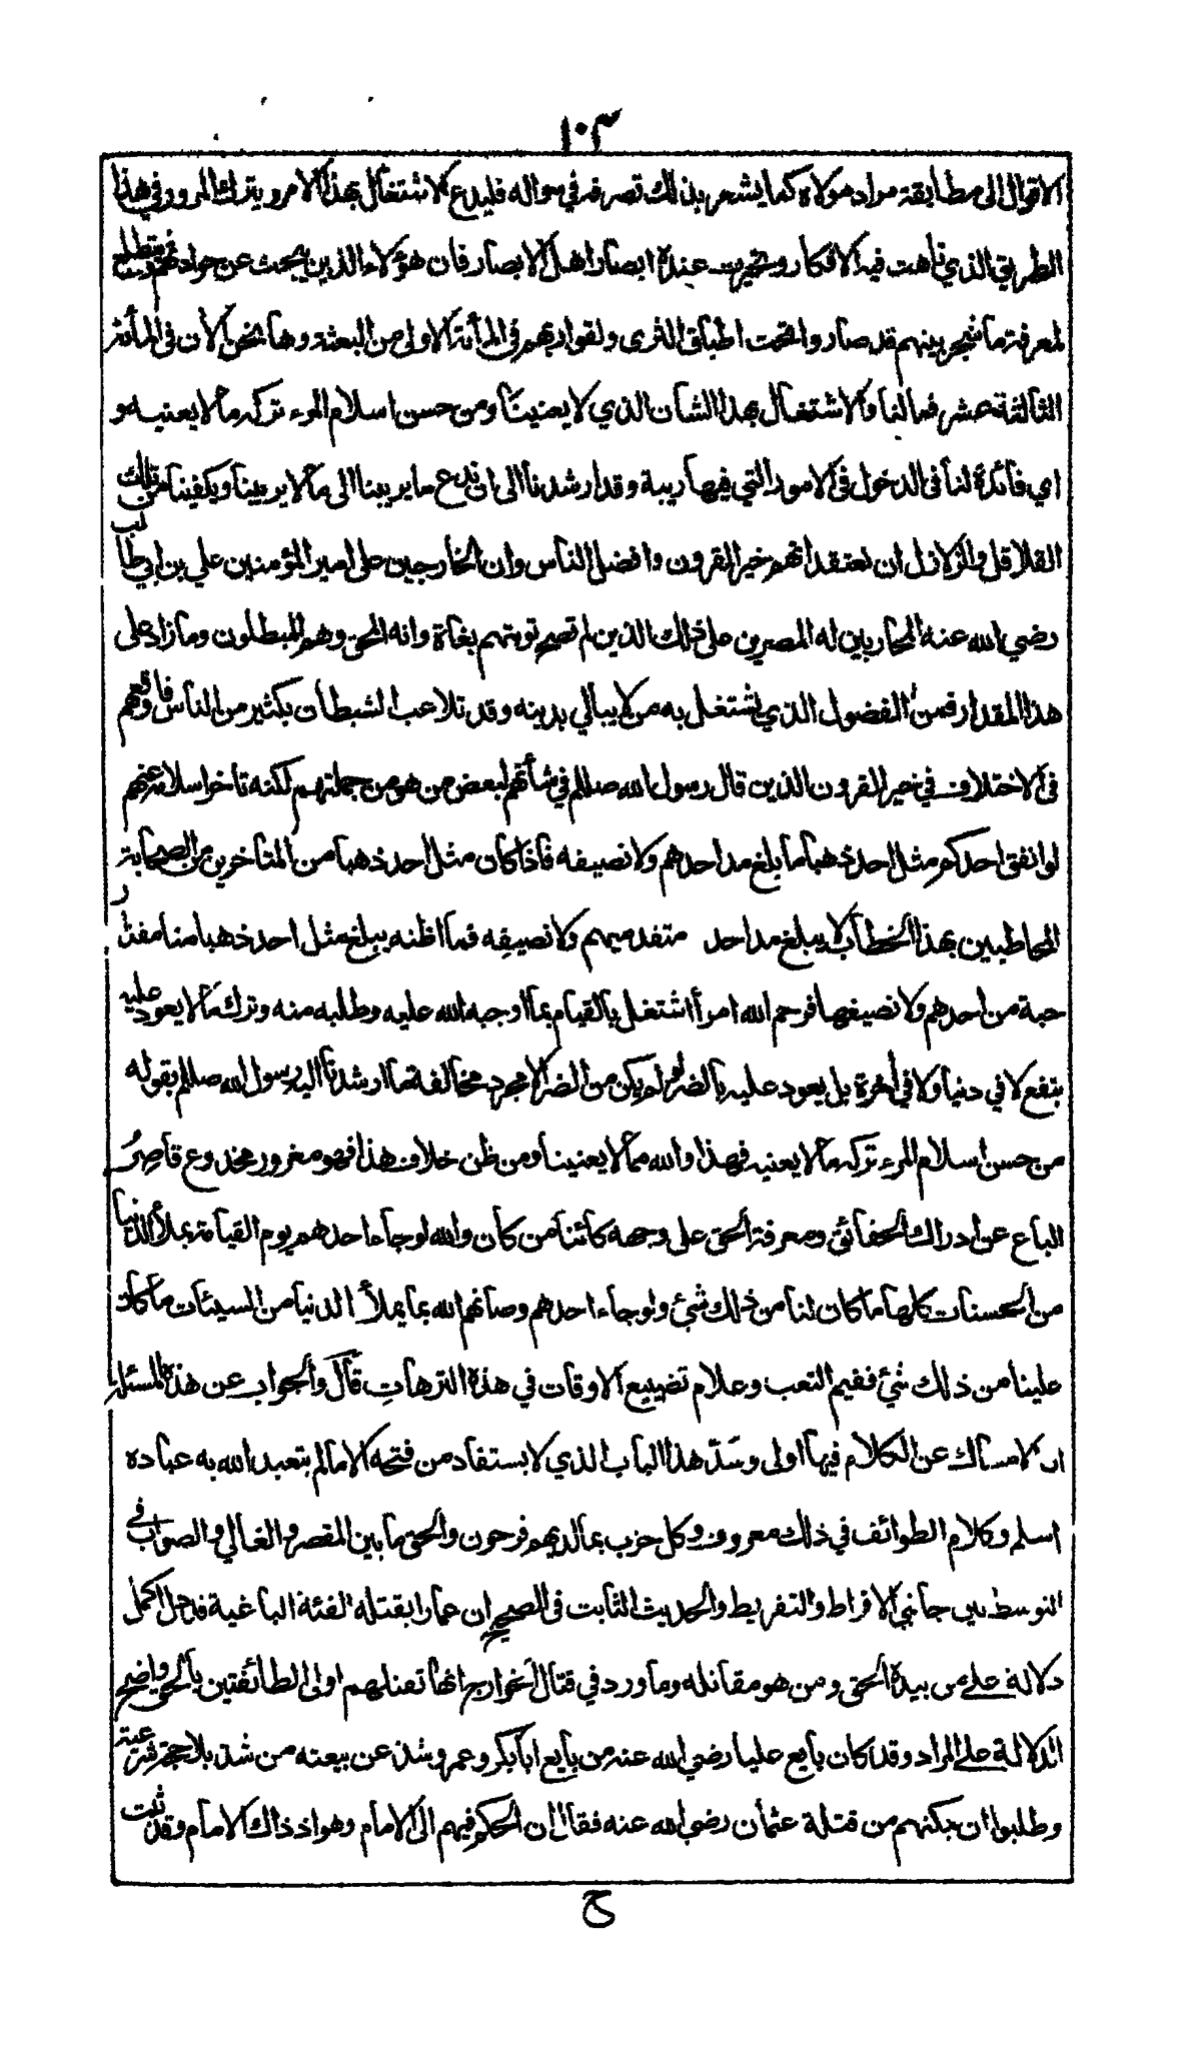 ١٠٣
الاقوال الى مطابقة مراد مولاه كما يشعر بذلك تصرفه في سواله فليدع الاشتغال بهذا الامر ويترك المرور في هذا
الطريق الذي تاهت فيه الافكار وتحيرت عنده ابصار اهل الابصار فان هؤلاء الذين يبحث عن حوادثهم ويتطلع
لمعرفة ما شجر بينهم قد صاروا تحت اطباق الثرى ولقوا ربهم في المأتة الاولى من البعثة وها نحن الآن في المأتة
الثالثة عشر فما لنا والاشتغال بهذا الشان الذي لا يعنينا ومن حسن اسلام المرء تركه ما لا يعنيه و
اي فائدة لنا في الدخول في الامور التي فيها ريبة وقد ارشدنا الى ان ندع ما يريبنا الى ما لا يريبنا ويكفينا من تلك
القلاقل والزلازل ان نعتقد انهم خير القرون وافضل الناس وان الخارجين على امير المؤمنين علي بن ابي طالب
رضي الله عنه المحاربين له المصرين على ذلك الذين لم تصح توبتهم بغاة وانه المحق وهم المبطلون وما زاد على
هذا المقدار فمن الفضول الذي يشتغل به من لا يبالي بدينه وقد تلاعب الشيطان بكثير من الناس فاوقعهم
في الاختلاف في خير القرون الذين قال رسول الله صللم في شأنهم لبعض من هو من جملتهم لكنه تاخر اسلامه عنهم
لو انفق احدكم مثل احد ذهبا ما بلغ مد احدهم ولا نصيفه فاذا كان مثل احد ذهبا من المتأخرين من الصحابة
المخاطبين بهذا الخطاب لا يبلغ مد احد متقدميهم ولا نصيفه فما اظنه يبلغ مثل احد ذهبا منا مقدار
حبة من احدهم ولا نصيفها فرحم الله امرأ اشتغل بالقيام بما اوجبه الله عليه وطلبه منه وترك ما لا يعود عليه
بنفع لا في دنيا ولا في أخرة بل يعود عليه بالضر ولو لم يكن من الضر الا مجرد مخالفة ما ارشدنا اليه رسول الله صللم بقوله
من حسن اسلام المرء تركه ما لا يعنيه فهذا والله مما لا يعنينا ومن ظن خلاف هذا فهو مغرور مخدوع قاصِرُ
الباع عن ادراك الحقائق ومعرفة الحق على وجهه كائنا من كان والله لو جاء احدهم يوم القيامة بملأ الدنيا
من الحسنات كلها ما كان لنا من ذلك شئ ولو جاء احدهم وصانهم الله بما يملأ الدنيا من السيئات ما كان
علينا من ذلك شئ ففيم التعب وعلام تضييع الاوقات في هذه الترهاتِ قال والجواب عن هذه المسئلة
ان الامساك عن الكلام فيها اولى وسَدّ هذا الباب الذي لا يستفاد من فتحه الا ما لم يتعبد الله به عباده
اسلم وكلام الطوائف في ذلك معروف وكل حزب بما لديهم فرحون والحق ما بين المقصر والغالي والصواب في
التوسط بين جانبي الافراط والتفريط والحديث الثابت في الصحيح ان عمارا يقتله الفئة الباغية قد دل اكمل
دلالة على من بيده الحق ومن هو مقاتله وما ورد في قتال الخوارج انها تقتلهم اولى الطائفتين بالحق واضح
الدلالة على المراد وقد كان بايع عليا رضي الله عنه من بايع ابا بكر وعمر وشذ عن بيعته من شذ بلا حجة شرعية
وطلبوا ان يمكنهم من قتلة عثمان رضي الله عنه فقال ان الحكم فيهم الى الامام وهو اذ ذاك الامام وقد ثبت
ح